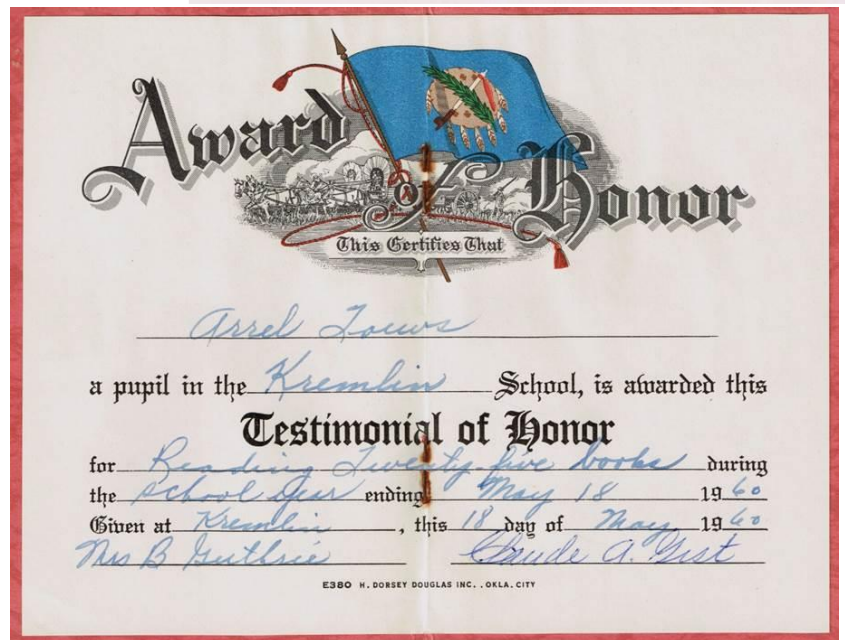 Award of Honor
This Certifies That
Arrel Toews
a pupil in the Kremlin School, is awarded this
Testimonial of Honor
for Reading Twenty five books during
the school year ending May 18 1960
Given at Kremlin, this 18 day of May 1960
Mrs B Guthrie Claude A. Gist
E380 H. DORSEY DOUGLAS INC., OKLA. CITY